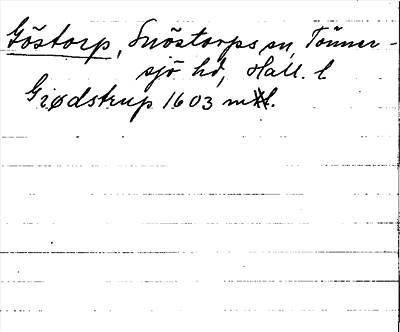 Göstorp, Snöstorps sn, Tönner-
sjö hd, Hall. l
Giødstrup 1603